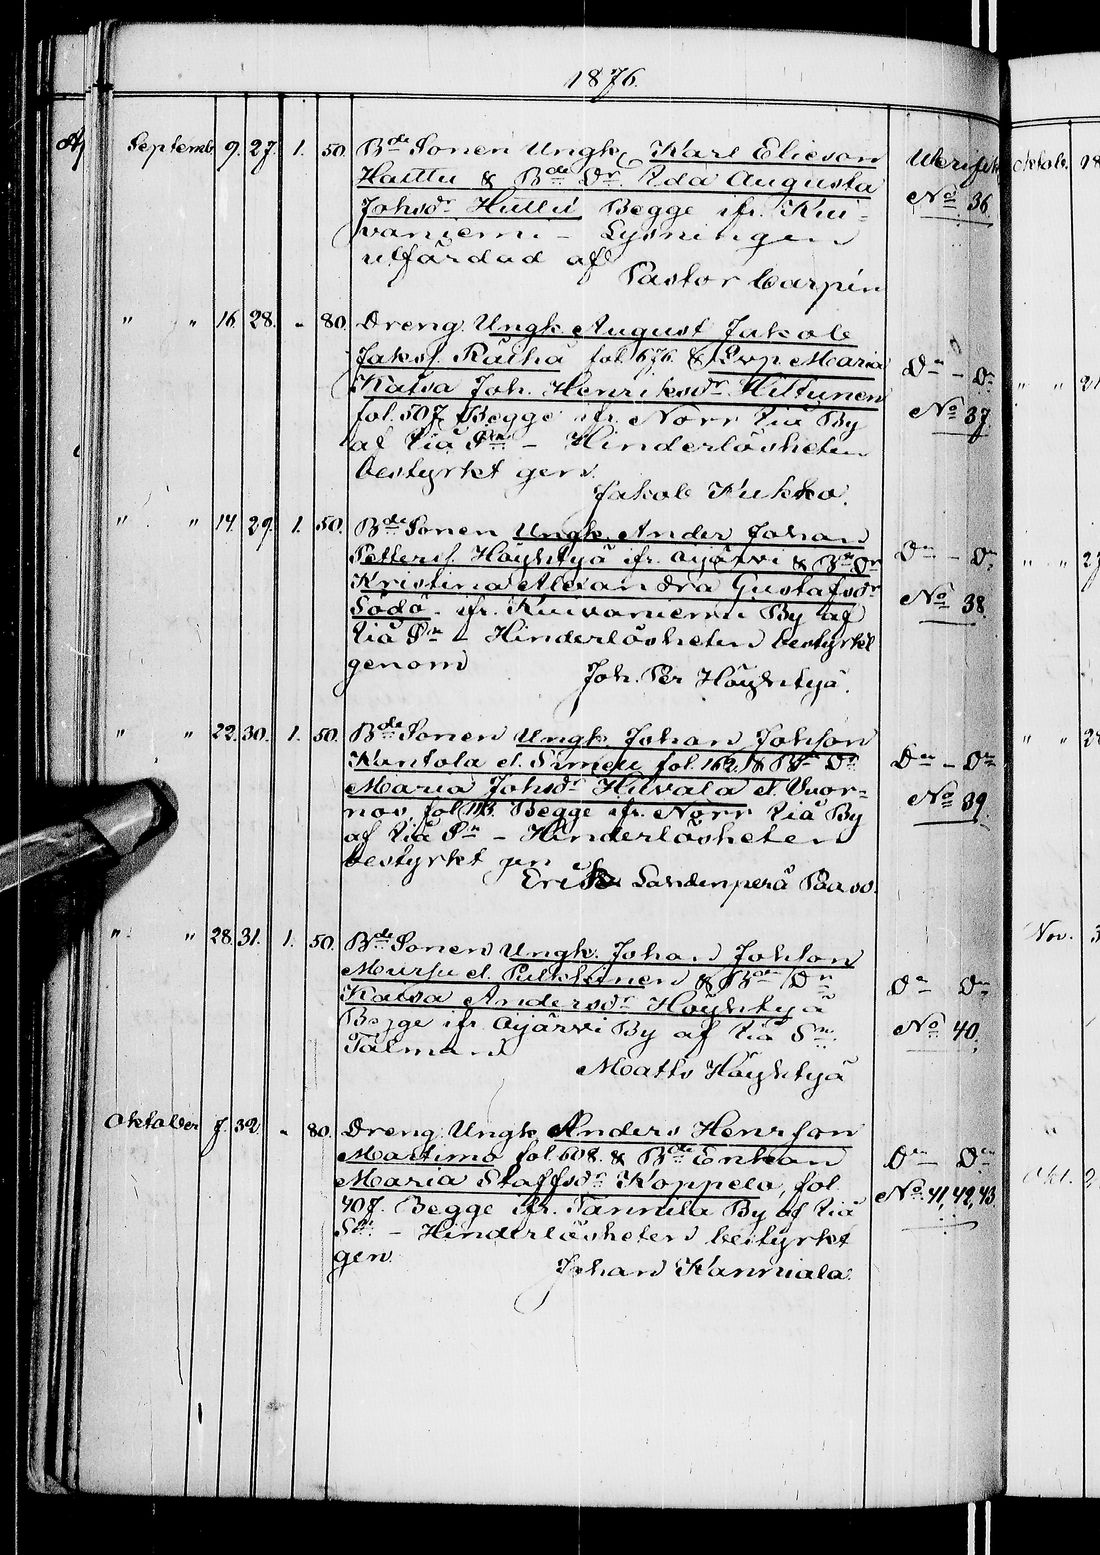 1876.
Septemb. 9. 27. 1. 50. Bde Sonen Ungk. Karl Ericson
Hauttu & Bde Dr. Ida Augusta
Johsdr. Huttu Begge ifr. Kui-
vaniemi – Lysningen
utfärdad af
Pastor Carpén
No 36.
" " 16. 28. - 80. Dreng. Ungk. August Jakob
Jakosf. Räihä fol. 676. & Maria
Kaisa Joh. Henriksdr. Hiltunen
fol. 507. Begge ifr. Norr Iiå By
af Iiå Sn. – Hinderlösheten
bestyrket gen.
Jakob Kukko.
Do – Do
No 37.
" " 17. 29. 1. 50. Bde Sonen Ungk. Ander Johan
Pettersf. Höyhtyä ifr. Ojärvi & Bde Dr
Kristina Alexandra Gustafsdr
Södö. ifr. Kuivaniemi By af
Iiå Sn – Hinderlösheten bestyrkt
genom
Joh. Per Höyhtyä.
Do – Do
No 38.
" " 22. 30. 1. 50. Bde Sonen Ungk. Johan Johsson
Kantola el. Simeu fol. 162. & Bde Dr
Maria Johsdr Hiivala el. Vuor-
nos. fol. 113. Begge ifr. Norr Iiå By
af Iiå Sn – Hinderlösheten
bestyrket gen
Erik Sandenperä Paaso.
Do – Do
No 39.
" " 28. 31. 1. 50. Bde Sonen Ungk. Johan Johsson
Mursu el. Pulkkinen & Bde Dr
Kaisa Andersdr. Höyhtyä
Begge ifr. Ojärvi By af Iiå Sn.
Talman
Matts Höyhtyä
Do Do
No 40.
Oktober 7. 32. - 80. Dreng. Ungk. Anders Henrsson
Martimo fol. 608. & Bde Enkan
Maria Staffsdr. Koppelo, fol.
407. Begge ifr. Tannila By af Iiå
Sn. – Hinderlösheten bestyrket
gen.
Johan Kannuala.
Do – Do
No 41, 42, 43.
Oktob.
Nov. 3
Okt.